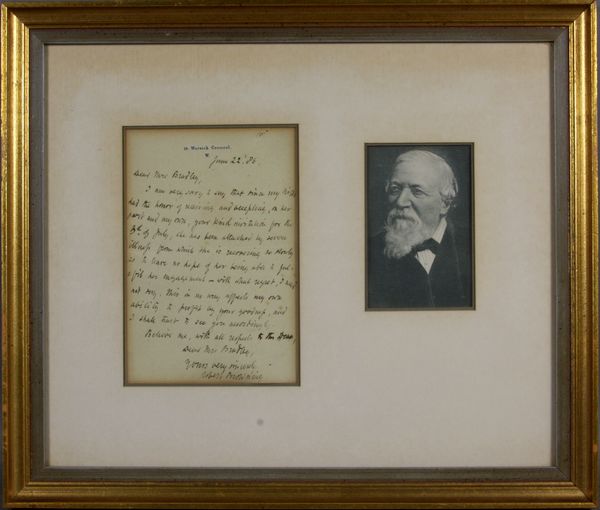 19 Warwick Crescent,
W.
June 22. '86.
Dear Mrs Bradley,
I am very sorry to say that since my
had the honor of receiving and accepting, on her
part and my own, your kind invitation for the
of July, she has been attacked by severe
illness from which she is recovering so slowly
as to leave no hope of her being able to ful-
-fill her engagement – with what regret, I need
not say. This in no way affects my own
ability to profit by your goodness, and
I shall trust to see you accordingly.
Believe me, with all respects to the Dean,
Dear Mrs Bradley,
Yours very sincerely
Robert Browning